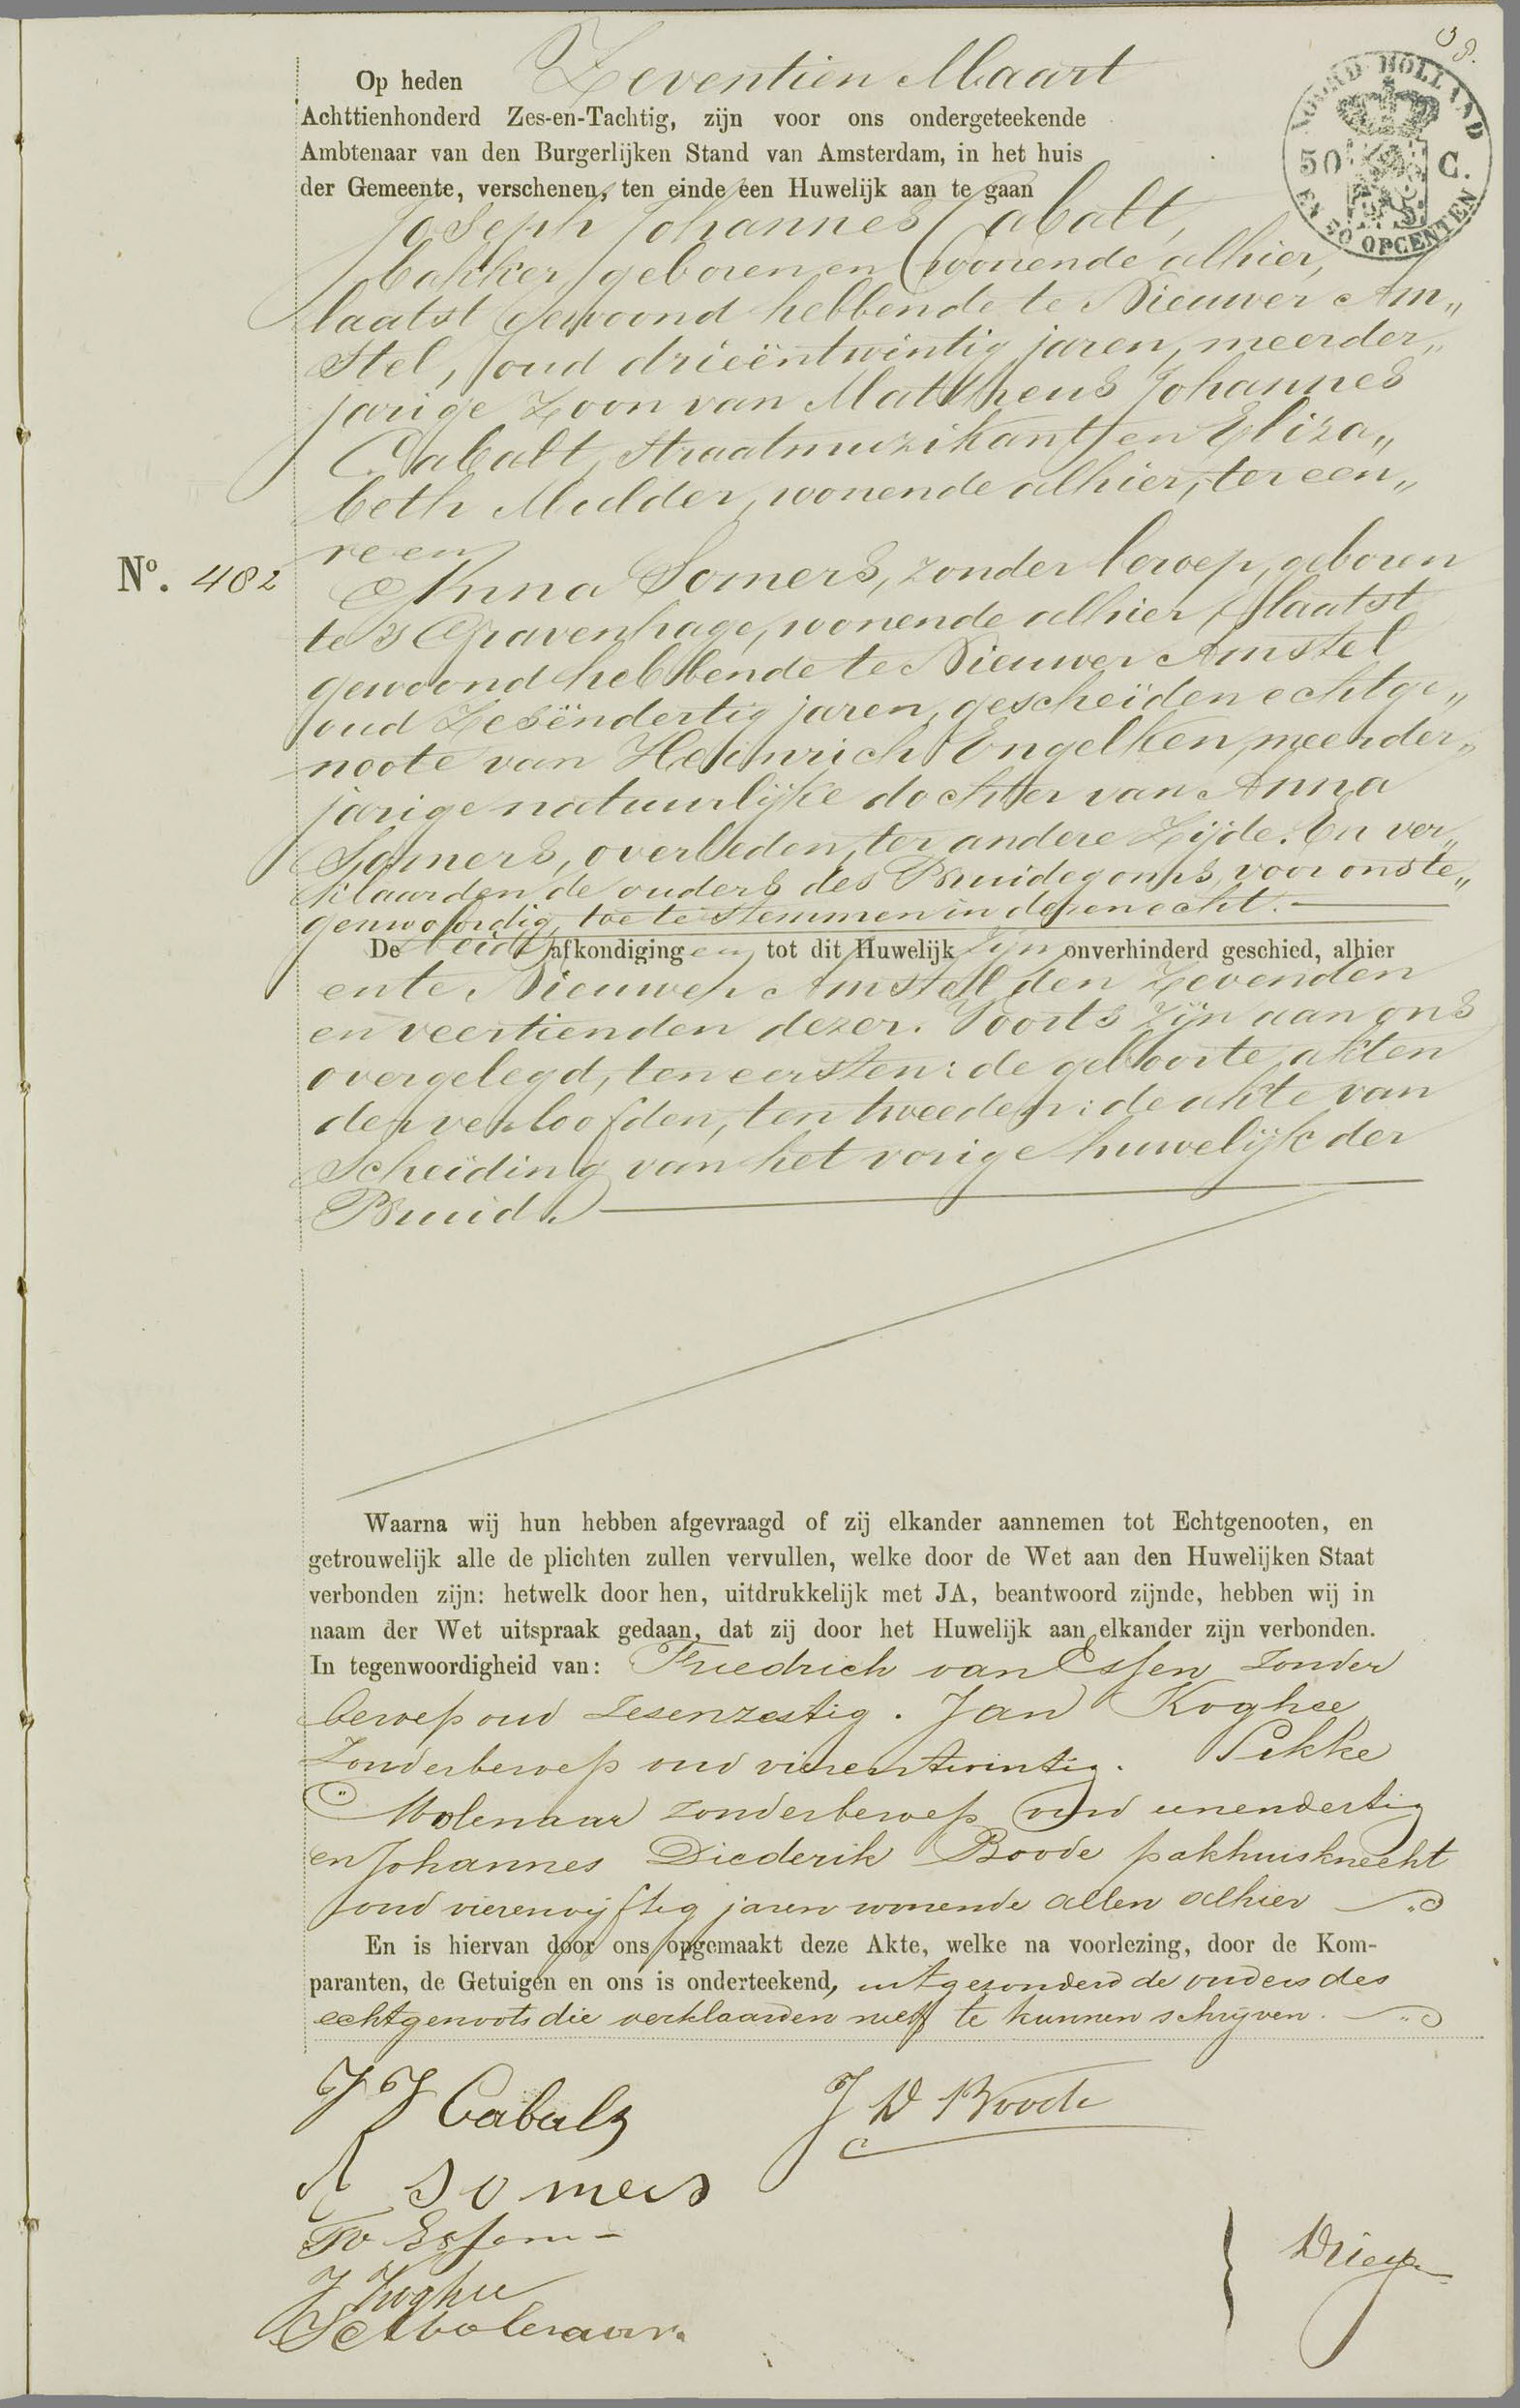 38.
NOORD HOLLAND
50 C.
EN 50 OPCENTEN
Op heden Zeventien Maart
Achttienhonderd Zes-en-Tachtig, zijn voor ons ondergeteekende
Ambtenaar van den Burgerlijken Stand van Amsterdam, in het huis
der Gemeente, verschenen, ten einde een Huwelijk aan te gaan
Joseph Johannes Cabalt,
bakker, geboren en wonende alhier,
laatst gewoond hebbende te Nieuwer Am„
stel, oud drieëntwintig jaren, meerder„
jarige Zoon van Mattheus Johannes
Cabalt, straatmuzikant en Eliza„
beth Mulder, wonende alhier, ter een„
re en
No. 482
Anna Somers, zonder beroep, geboren
te 's Gravenhage, wonende alhier, laatst
gewoond hebbende te Nieuwer Amstel
oud Zesëndertig jaren, gescheiden echtge„
noote van Heinrich Engelken, meerder„
jarige natuurlijke dochter van Anna
Somers, overleden, ter andere Zijde. En ver„
klaarden de ouders des Bruidegoms, voor ons te„
genwoordig, toe te stemmen in dezen echt.
De beide afkondigingen tot dit Huwelijk Zijn onverhinderd geschied, alhier
en te Nieuwer Amstel den Zevenden
en veertienden dezer. Voorts Zijn aan ons
overgelegd, ten eersten: de geboorte akten
der verloofden, ten tweeden: de akte van
Scheiding van het vorige huwelijk der
Bruid.
Waarna wij hun hebben afgevraagd of zij elkander aannemen tot Echtgenooten, en
getrouwelijk alle de plichten zullen vervullen, welke door de Wet aan den Huwelijken Staat
verbonden zijn: hetwelk door hen, uitdrukkelijk met JA, beantwoord zijnde, hebben wij in
naam der Wet uitspraak gedaan, dat zij door het Huwelijk aan elkander zijn verbonden.
In tegenwoordigheid van: Friedrich van Essen zonder
beroep oud zesenzestig. Jan Koghee
zonder beroep oud vierentwintig. Sikke
Molenaar zonder beroep oud eenendertig
en Johannes Diederik Boode pakhuisknecht
oud vierenvijftig jaren wonende allen alhier
En is hiervan door ons opgemaakt deze Akte, welke na voorlezing, door de Kom-
paranten, de Getuigen en ons is onderteekend, uitgezonderd de ouders des
echtgenoots die verklaarden niet te kunnen schrijven.
J J Cabalz
J D Boode
A Somers
Fv Essen
J Koghee
S Molenaar.